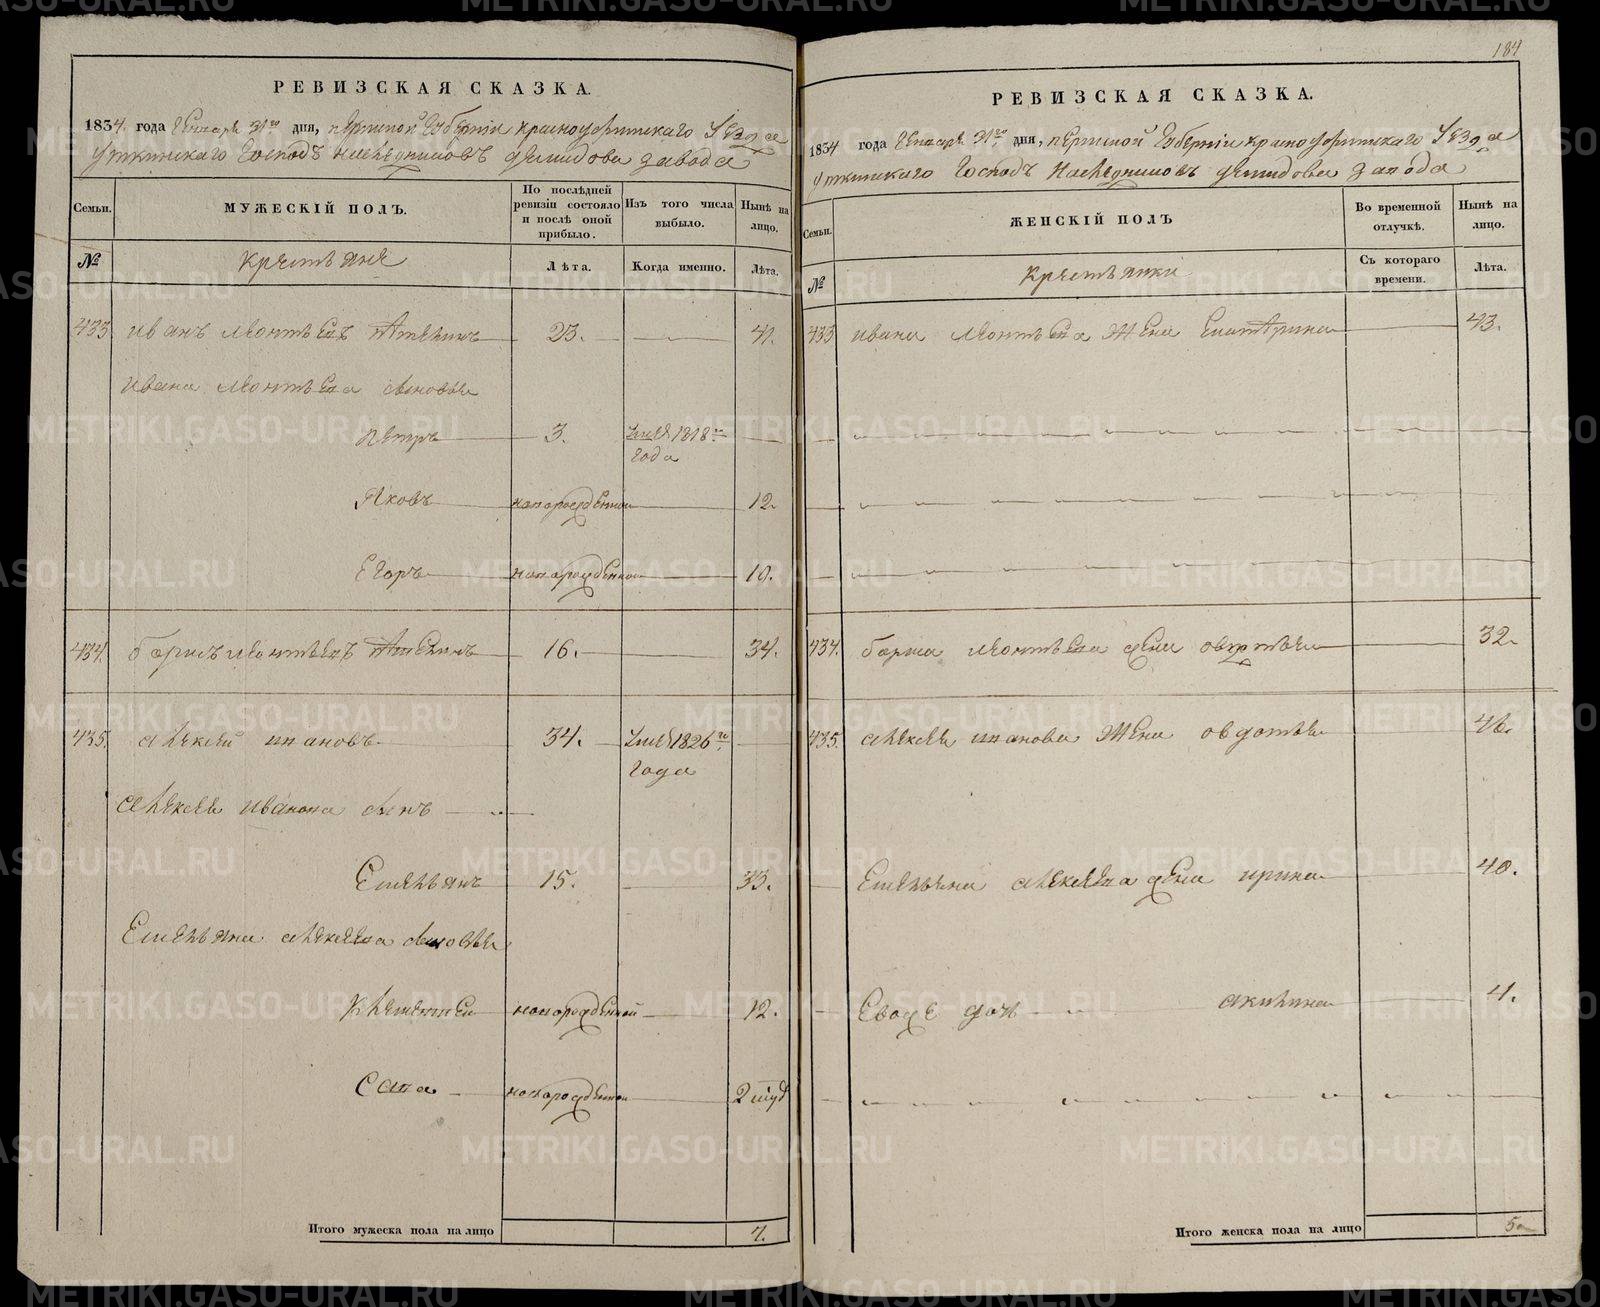 184
РЕВИЗСКАЯ СКАЗКА.
1834. года Генваря 31го дня, пермской Губерніи красноуфимскаго Уезда
Уткинскаго Господъ наследниковъ демидова завода
Семьи.
МУЖЕСКІЙ ПОЛЪ.
По послѣдней ревизіи состояло и послѣ оной прибыло.
Изъ того числа выбыло.
Нынѣ на лицо.
№
крестьяне
Лѣта.
Когда именно.
Лѣта.
433 иванъ леонтьевъ 23. 41.
ивана леонтьева сыновья
петръ 3. умеръ 1818го
года
Яковъ новорожденной 12.
Егоръ новорожденной 10.
434. борисъ леонтьевъ 16. 34.
435. алексей ивановъ 34. умеръ 1826го
года
алексея иванова сынъ
Емельянъ 15. 33.
Емельяна алексеева сыновья
Клементей новорожденной 12.
Сава новорожденной 2
Итого мужеска пола на лицо 7.
РЕВИЗСКАЯ СКАЗКА.
1834 года Генваря 31го дня, пермской Губерніи красноуфимскаго Уезда
уткинскаго Господъ Наследниковъ демидова завода
Семьи.
ЖЕНСКІЙ ПОЛЪ
Во временной отлучкѣ.
Нынѣ на лицо.
№
Крестьянки
Съ котораго времени.
Лѣта.
433 ивана леонтьева жена Екатерина 43.
434. бориса леонтьева жена 32.
435. алексея иванова жена овдотья
Емельяна алексеева жена ирина 40.
Евоже дочь акилина 4.
Итого женска пола на лицо 5
METRIKI.GASO-URAL.RU